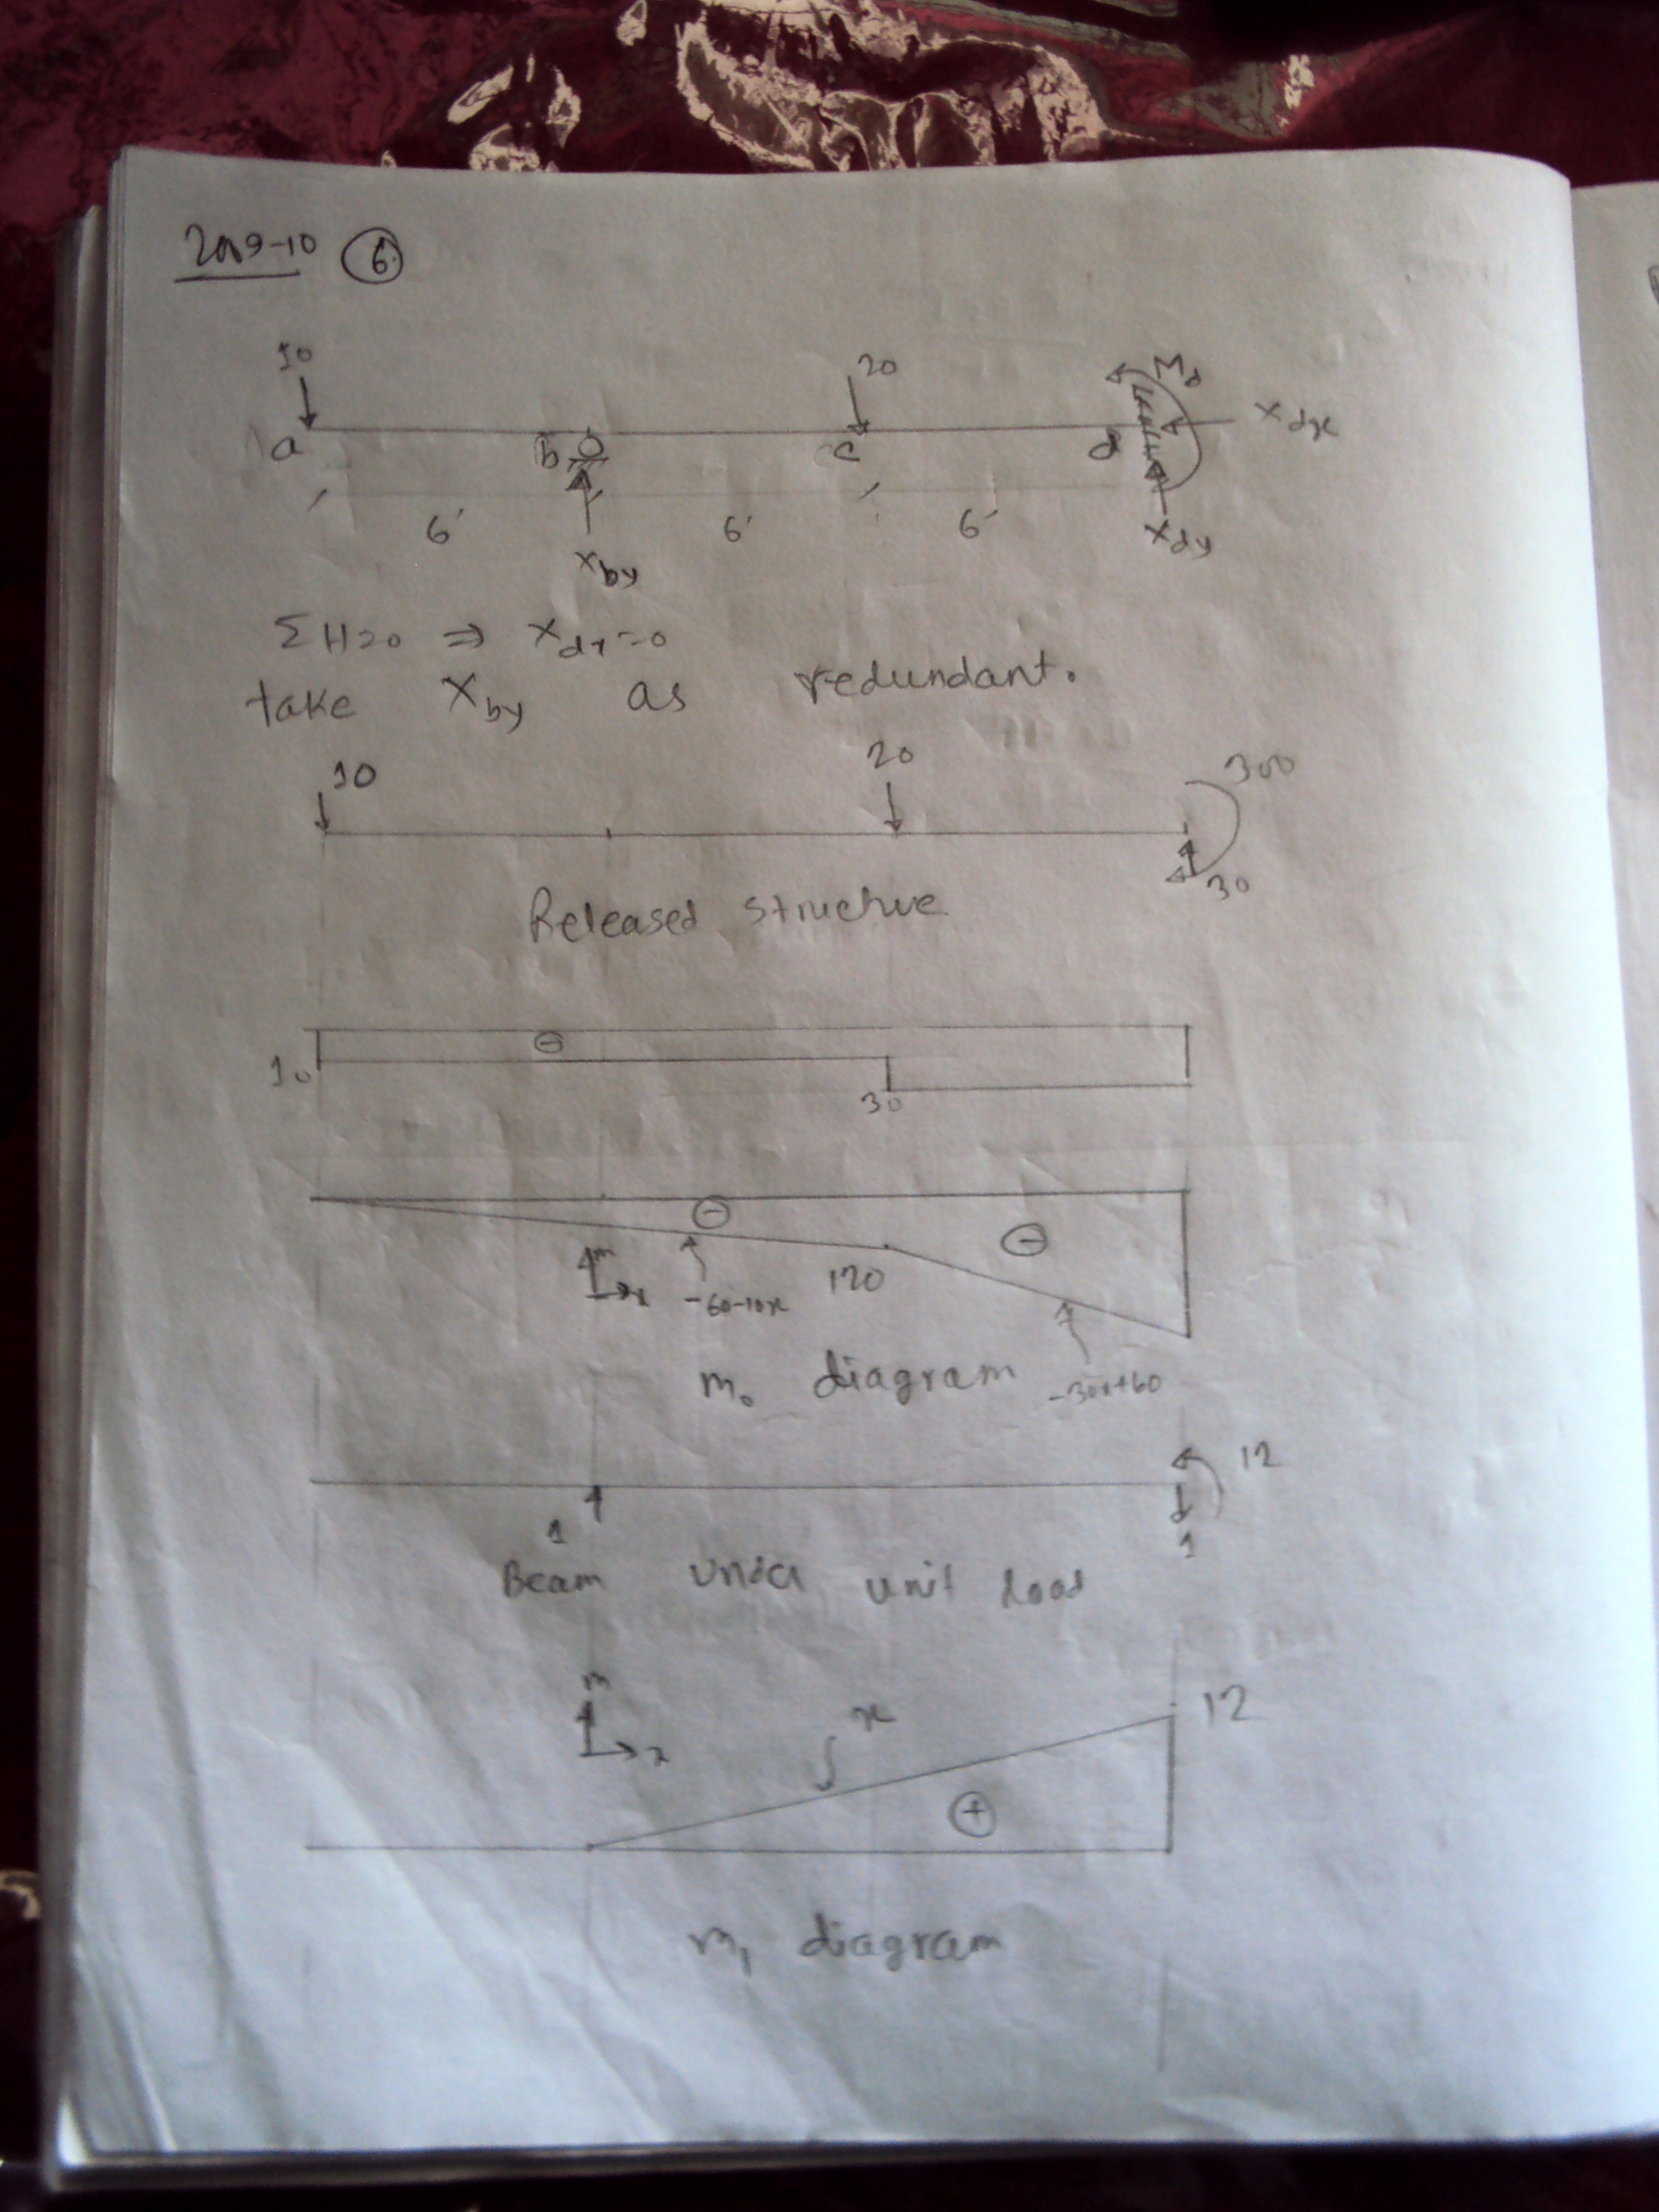 2009-10 ⑥
10 20 M_D
a b c d X_dx
6' 6' 6'
X_by X_dy
ΣH=0 ⇒ X_dx=0
take X_by as redundant.
10 20 300
30
Released structure
⊖
10
30
⊖ ⊖
m
x -60-10x 120
m₀ diagram -30x+60
12
1 1
Beam under unit load
m x 12
x
⊕
m₁ diagram